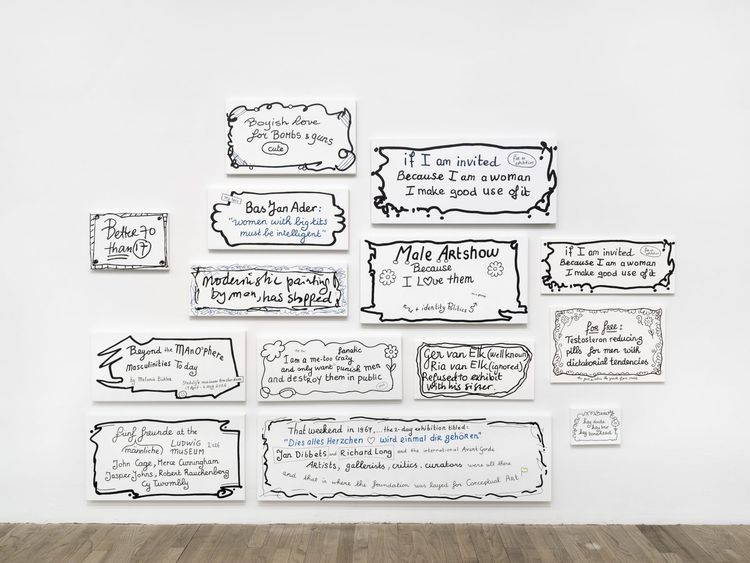 Boyish love
for BOMBS & guns
cute
if I am invited
Because I am a woman
I make good use of it
Bas Jan Ader:
"women with big tits
must be intelligent"
Better 70
than 17
Male Artshow
Because
I L♡ve them
+ identity Politics
if I am invited
Because I am a woman
I make good use of it
modernistic painting
by man, has stopped
for free:
Testosteron reducing
pills for men with
dictatorial tendencies
Beyond the MAnO'phere
Masculinities To day
by Melanie Bühler
fanatic
I am a me-too crazy
and only want punish men
and destroy them in public
Ger van Elk (well known)
Ria van Elk (ignored)
Refused to exhibit
with his sister.
fünf freunde at the
(männliche) LUDWIG
MUSEUM
John Cage, Merce Cunningham
Jasper Johns, Robert Rauchenberg
Cy Twombly
That weekend in 1967,... the 2-day exhibition titled:
"Dies alles Herzchen ♡ wird einmal dir gehören"
Jan Dibbets and Richard Long and the international Avant Garde
Artists, gallerists, critics, curators were all there
and that is where the foundation was layed for Conceptual Art